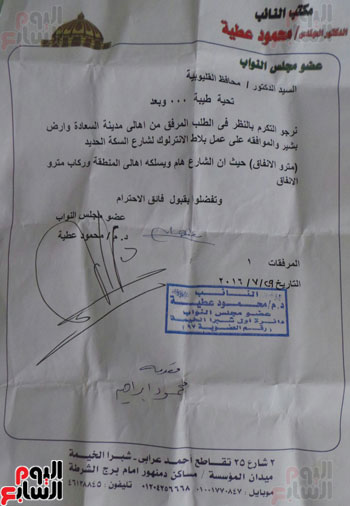 اليوم السابع
مكتب النائب
الدكتور المهندس / محمود عطية
عضو مجلس النواب
السيد الدكتور / محافظ القليوبية
تحية طيبة ... وبعد
نرجو التكرم بالنظر فى الطلب المرفق من اهالى مدينة السعادة وارض
بشير والموافقه على عمل بلاط الانترلوك لشارع السكة الحديد
(مترو الانفاق) حيث ان الشارع هام ويسلكه اهالى المنطقة وركاب مترو
الانفاق
وتفضلو بقبول فائق الاحترام
عضو مجلس النواب
د.م/ محمود عطية
المرفقات ١
التاريخ ٢٩/٧/٢٠١٦
النائب
د.م/محمود عطية
عضو مجلس النواب
دائرة اول شبرا الخيمة
(رقم العضوية ٩٧)
مقدمه
محمود ابراهيم
٢ شارع ٢٥ تقاطع أحمد عرابى - شبرا الخيمة
ميدان المؤسسة / مساكن دمنهور امام برج الشرطة
موبايل : ٠١٠٠١٧٧٠٨٤٧ - ٠١٢٠٤٢٥٦٦٦٨ تليفون : ٤٦١٢٨٨٤٥
اليوم السابع
اليوم السابع